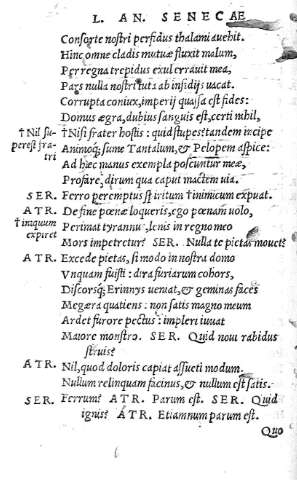 L. AN. SENECAE
Consorte nostri perfidus thalami auehit.
Hinc omne cladis mutuæ fluxit malum,
Per regna trepidus exul erraui mea,
Pars nulla nostri tuta ab insidijs uacat.
Corrupta coniux, imperij quassa est fides:
Domus ægra, dubius sanguis est, certi nihil,
† Nil su- †Nisi frater hostis: quid stupes? tandem incipe
perest fra- Animoq; sume Tantalum, & Pelopem aspice:
tri Ad hæc manus exempla poscuntur meæ,
Profare, dirum qua caput mactem uia.
SER. Ferro peremptus spiritum †inimicum expuat.
ATR. De fine pœnæ loqueris, ego pœnam uolo,
† iniquum Perimat tyrannus lenis in regno meo
expiret Mors impetretur? SER. Nulla te pietas mouet?
ATR. Excede pietas, si modo in nostra domo
Vnquam fuisti: dira furiarum cohors,
Discorsq; Erinnys ueniat, & geminas faces
Megæra quatiens: non satis magno meum
Ardet furore pectus: impleri iuuat
Maiore monstro. SER. Quid noui rabidus
struis?
ATR. Nil, quod doloris capiat assueti modum.
Nullum relinquam facinus, & nullum est satis.
SER. Ferrum? ATR. Parum est. SER. Quid
ignis? ATR. Etiamnum parum est.
Quo